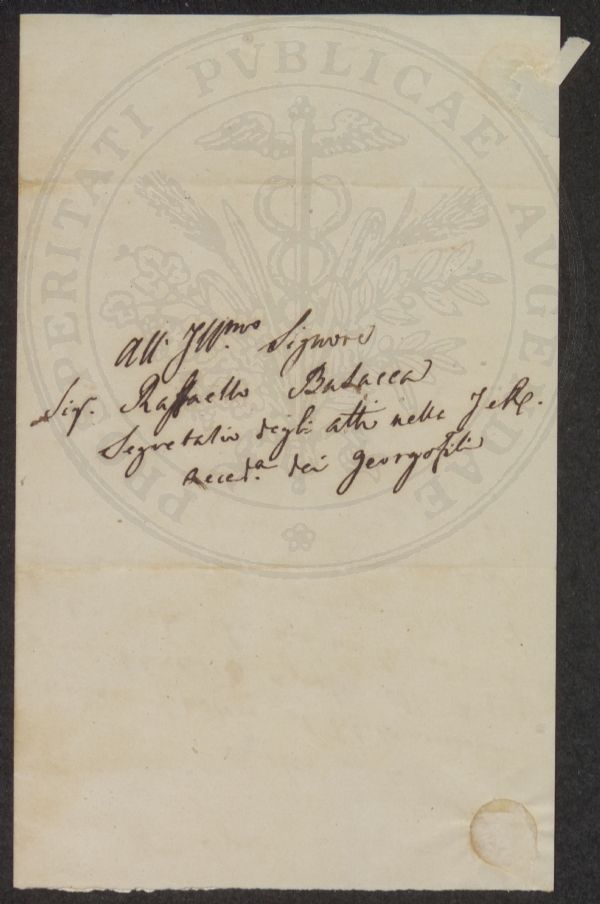 PROSPERITATI PVBLICAE AVGENDAE
All' Ill.mo Signore
Sig. Raffaello Busacca
Segretario degli atti nella I e R.
Acced.a dei Georgofili